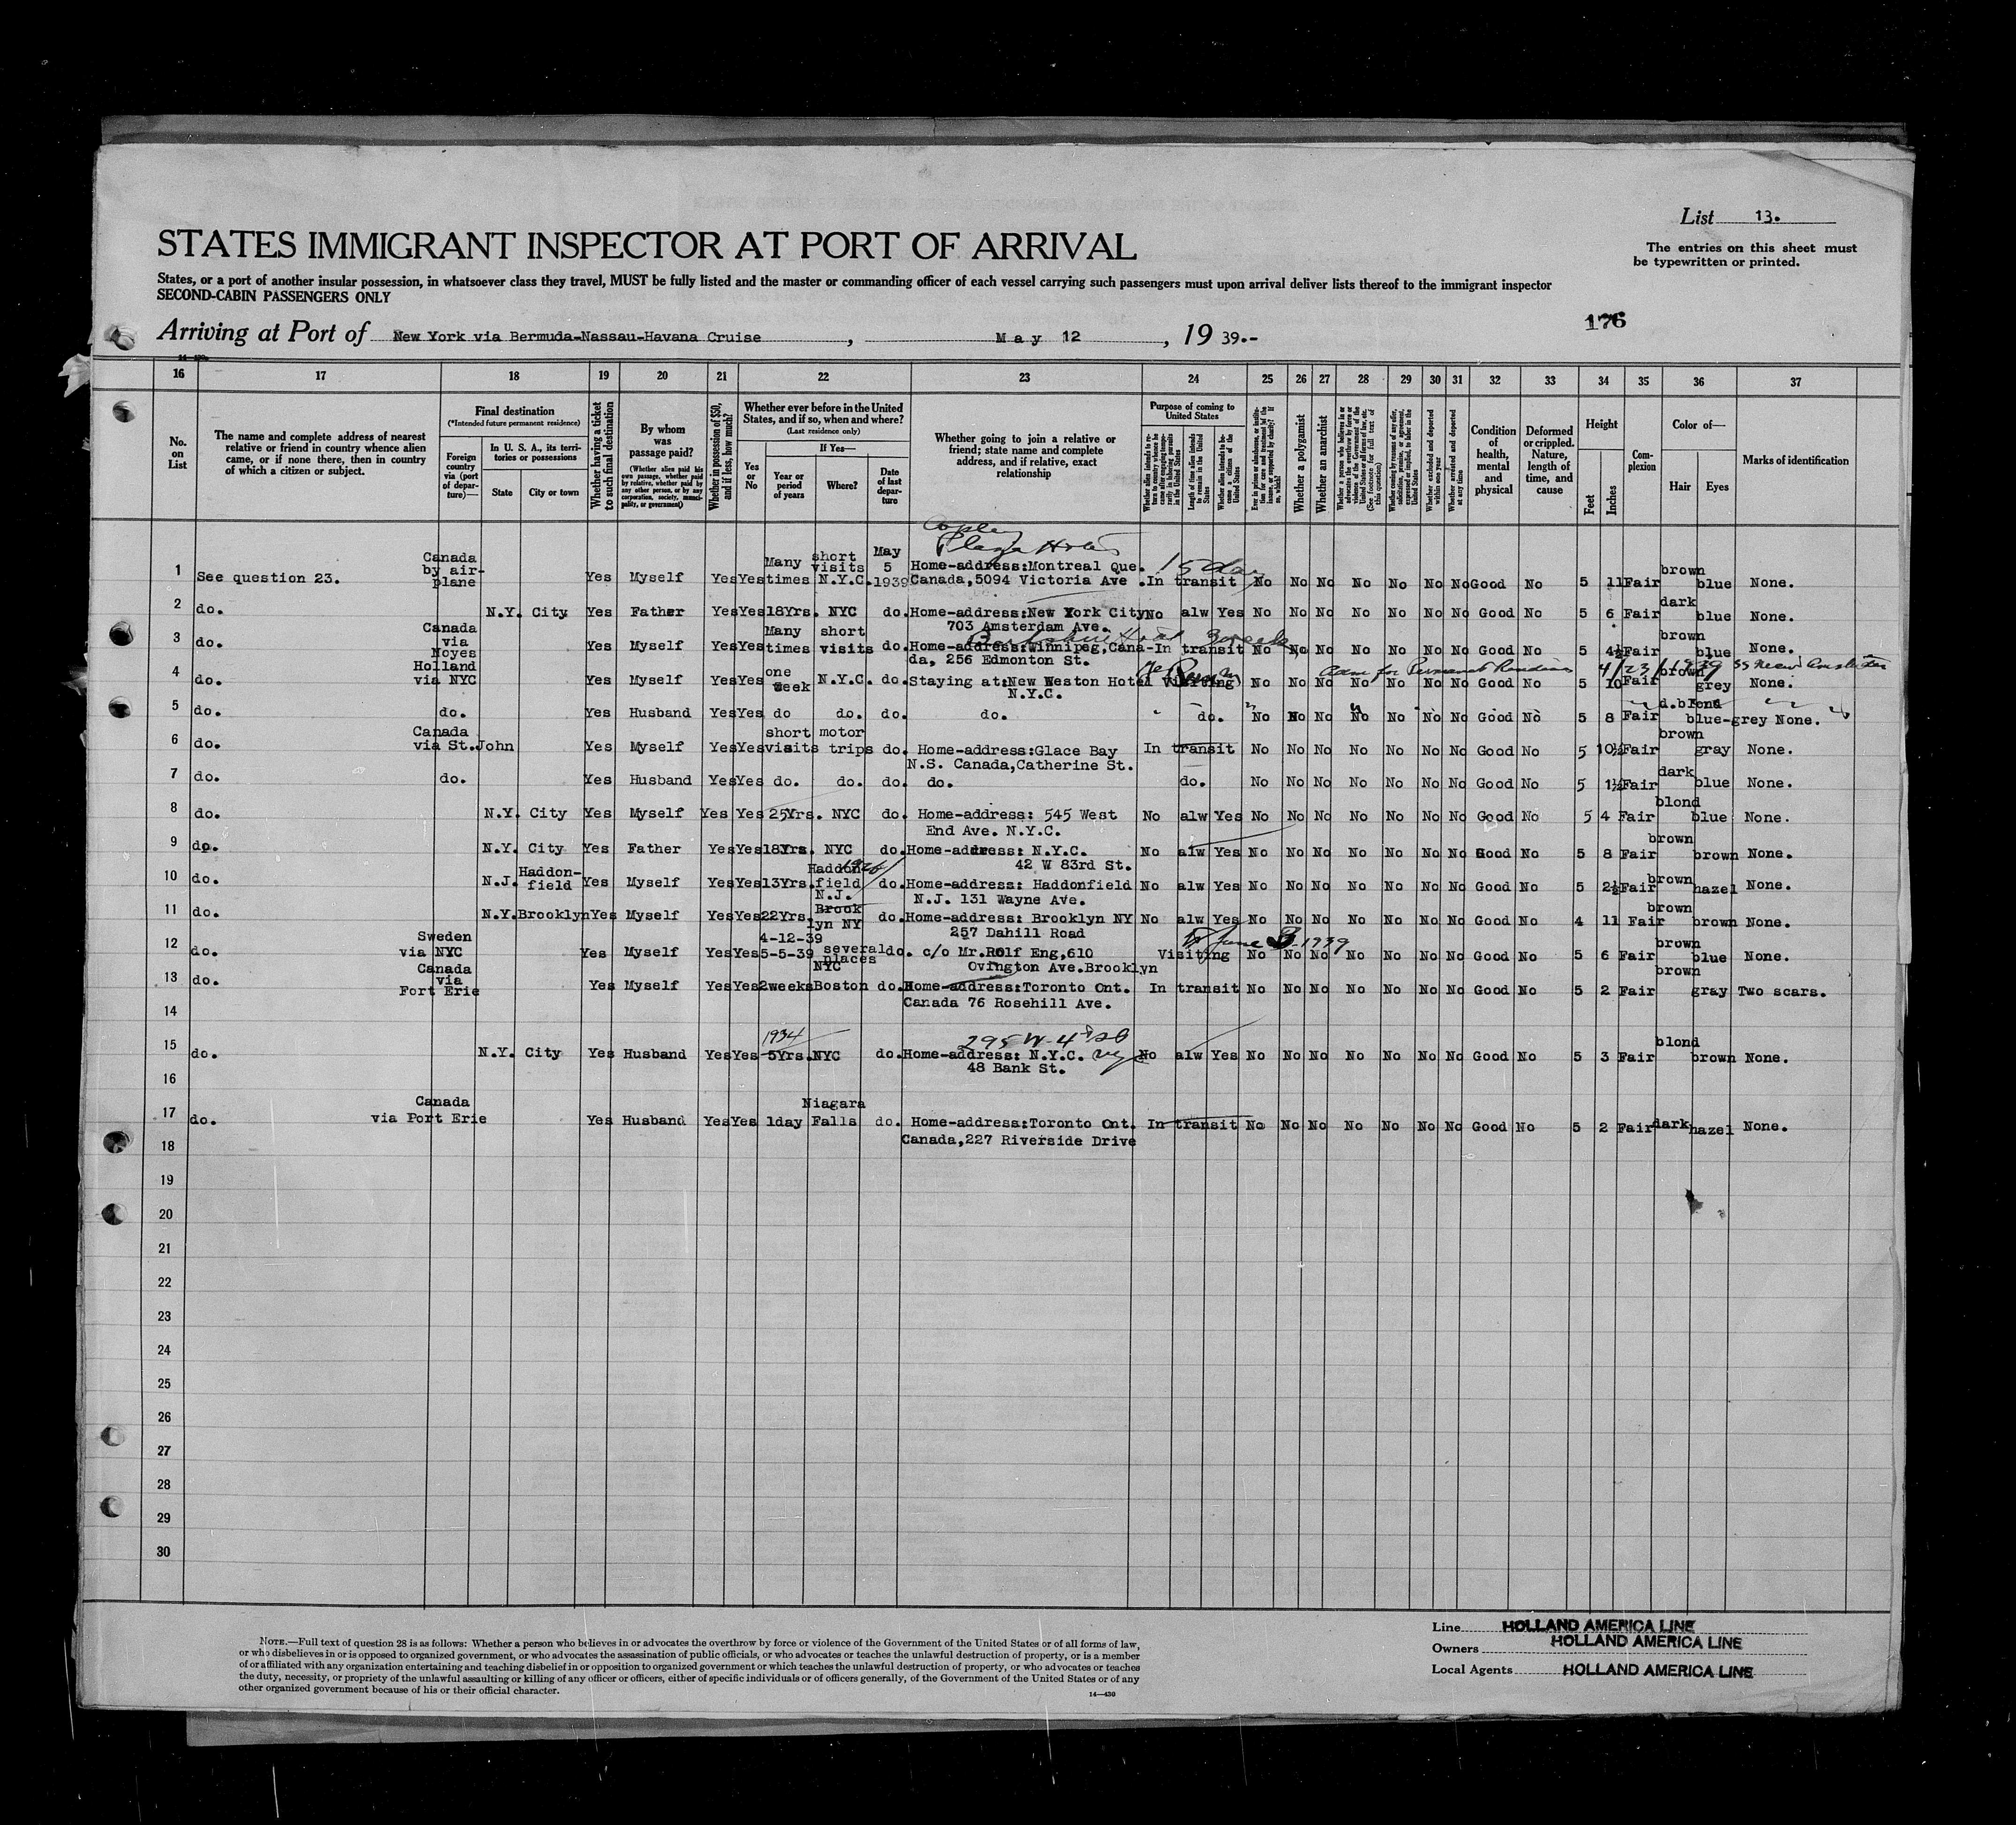 List 13.
STATES IMMIGRANT INSPECTOR AT PORT OF ARRIVAL
The entries on this sheet must
be typewritten or printed.
States, or a port of another insular possession, in whatsoever class they travel, MUST be fully listed and the master or commanding officer of each vessel carrying such passengers must upon arrival deliver lists thereof to the immigrant inspector
SECOND-CABIN PASSENGERS ONLY
176
Arriving at Port of New York via Bermuda-Nassau-Havana Cruise, May 12, 19 39.-
16 17 18 19 20 21 22 23 24 25 26 27 28 29 30 31 32 33 34 35 36 37
No. on List
The name and complete address of nearest relative or friend in country whence alien came, or if none there, then in country of which a citizen or subject.
Final destination
(*Intended future permanent residence)
Foreign country via (port of departure)—
In U. S. A., its territories or possessions
State
City or town
Whether having a ticket to such final destination
By whom was passage paid?
(Whether alien paid his own passage, whether paid by relative, whether paid by any other person, or by any corporation, society, municipality, or government)
Whether in possession of $50, and if less, how much?
Whether ever before in the United States, and if so, when and where?
(Last residence only)
Yes or No
If Yes—
Year or period of years
Where?
Date of last departure
Whether going to join a relative or friend; state name and complete address, and if relative, exact relationship
Purpose of coming to United States
Whether a polygamist
Whether an anarchist
Condition of health, mental and physical
Deformed or crippled. Nature, length of time, and cause
Height
Feet
Inches
Complexion
Color of—
Hair
Eyes
Marks of identification
Copley
Plaza Hotel
15 days
1 See question 23. Canada by air-plane Yes Myself Yes Yes Many times short visits N.Y.C. May 5 1939 Home-address:Montreal Que. Canada,5094 Victoria Ave. In transit No No No No No No No Good No 5 11 Fair brown blue None.
2 do. N.Y. City Yes Father Yes Yes 18Yrs. NYC do. Home-address:New York City 703 Amsterdam Ave. No alw Yes No No No No No No No Good No 5 6 Fair dark blue None.
3 do. Canada via Noyes Yes Myself Yes Yes Many times short visits do. Home-address:Winnipeg,Cana-da, 256 Edmonton St. In transit No No No No No No No Good No 5 4½ Fair brown blue None.
4/23/1939
4 do. Holland via NYC Yes Myself Yes Yes one week N.Y.C. do. Staying at:New Weston Hotel N.Y.C. Visiting No No No No No No No Good No 5 10 Fair brown grey None.
5 do. do. Yes Husband Yes Yes do do. do. do. do. No No No No No No No Good No 5 8 Fair d.blond blue-grey None.
6 do. Canada via St.John Yes Myself Yes Yes short visits motor trips do. Home-address:Glace Bay N.S. Canada,Catherine St. In transit No No No No No No No Good No 5 10½ Fair brown gray None.
7 do. do. Yes Husband Yes Yes do. do. do. do. do. No No No No No No No Good No 5 1½ Fair dark blue None.
8 do. N.Y. City Yes Myself Yes Yes 25Yrs. NYC do. Home-address: 545 West End Ave. N.Y.C. No alw Yes No No No No No No No Good No 5 4 Fair blond blue None.
9 do. N.Y. City Yes Father Yes Yes 18Yrs. NYC do. Home-address: N.Y.C. 42 W 83rd St. No alw Yes No No No No No No No Good No 5 8 Fair brown brown None.
10 do. N.J. Haddon-field Yes Myself Yes Yes 13Yrs. Haddon-field N.J. 1926 do. Home-address: Haddonfield N.J. 131 Wayne Ave. No alw Yes No No No No No No No Good No 5 2½ Fair brown hazel None.
11 do. N.Y. Brooklyn Yes Myself Yes Yes 22Yrs. Brook lyn NY do. Home-address: Brooklyn NY 257 Dahill Road No alw Yes No No No No No No No Good No 4 11 Fair brown brown None.
To June 3-1939
12 do. Sweden via NYC Yes Myself Yes Yes 4-12-39 5-5-39 several places do. c/o Mr.Rolf Eng,610 Ovington Ave.Brooklyn Visiting No No No No No No No Good No 5 6 Fair brown blue None.
13 do. Canada via Fort Erie Yes Myself Yes Yes 2weeks NYC Boston do. Home-address:Toronto Ont. Canada 76 Rosehill Ave. In transit No No No No No No No Good No 5 2 Fair brown gray Two scars.
14
1934 295 W. 4th St
15 do. N.Y. City Yes Husband Yes Yes 5Yrs. NYC do. Home-address: N.Y.C. 48 Bank St. No alw Yes No No No No No No No Good No 5 3 Fair blond brown None.
16
17 do. Canada via Port Erie Yes Husband Yes Yes 1day Niagara Falls do. Home-address:Toronto Ont. Canada,227 Riverside Drive In transit No No No No No No No Good No 5 2 Fair dark hazel None.
18
19
20
21
22
23
24
25
26
27
28
29
30
NOTE.—Full text of question 28 is as follows: Whether a person who believes in or advocates the overthrow by force or violence of the Government of the United States or of all forms of law,
or who disbelieves in or is opposed to organized government, or who advocates the assassination of public officials, or who advocates or teaches the unlawful destruction of property, or is a member
of or affiliated with any organization entertaining and teaching disbelief in or opposition to organized government or which teaches the unlawful destruction of property, or who advocates or teaches
the duty, necessity, or propriety of the unlawful assaulting or killing of any officer or officers, either of specific individuals or of officers generally, of the Government of the United States or of any
other organized government because of his or their official character.
14—430
Line HOLLAND AMERICA LINE
Owners HOLLAND AMERICA LINE
Local Agents HOLLAND AMERICA LINE